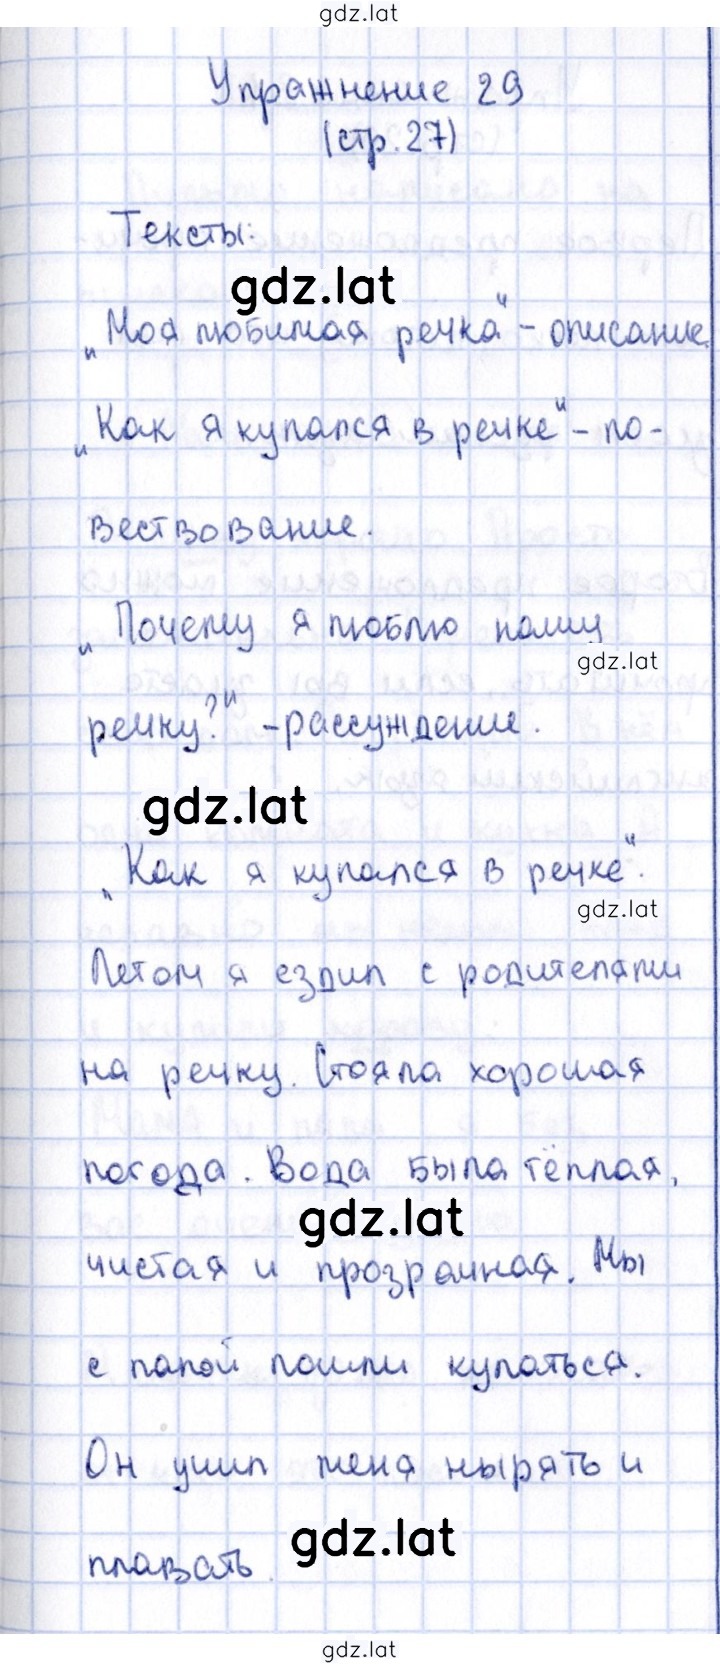 gdz.lat
Упражнение 29
(стр. 27)
Тексты:
gdz.lat
„Моя любимая речка" - описание.
„Как я купался в речке" - по-
вествование.
„Почему я люблю нашу
gdz.lat
речку?" - рассуждение.
gdz.lat
„Как я купался в речке".
gdz.lat
Летом я ездил с родителями
на речку. Стояла хорошая
погода. Вода была тёплая,
gdz.lat
чистая и прозрачная. Мы
с папой пошли купаться.
Он учил меня нырять и
gdz.lat
плавать.
gdz.lat